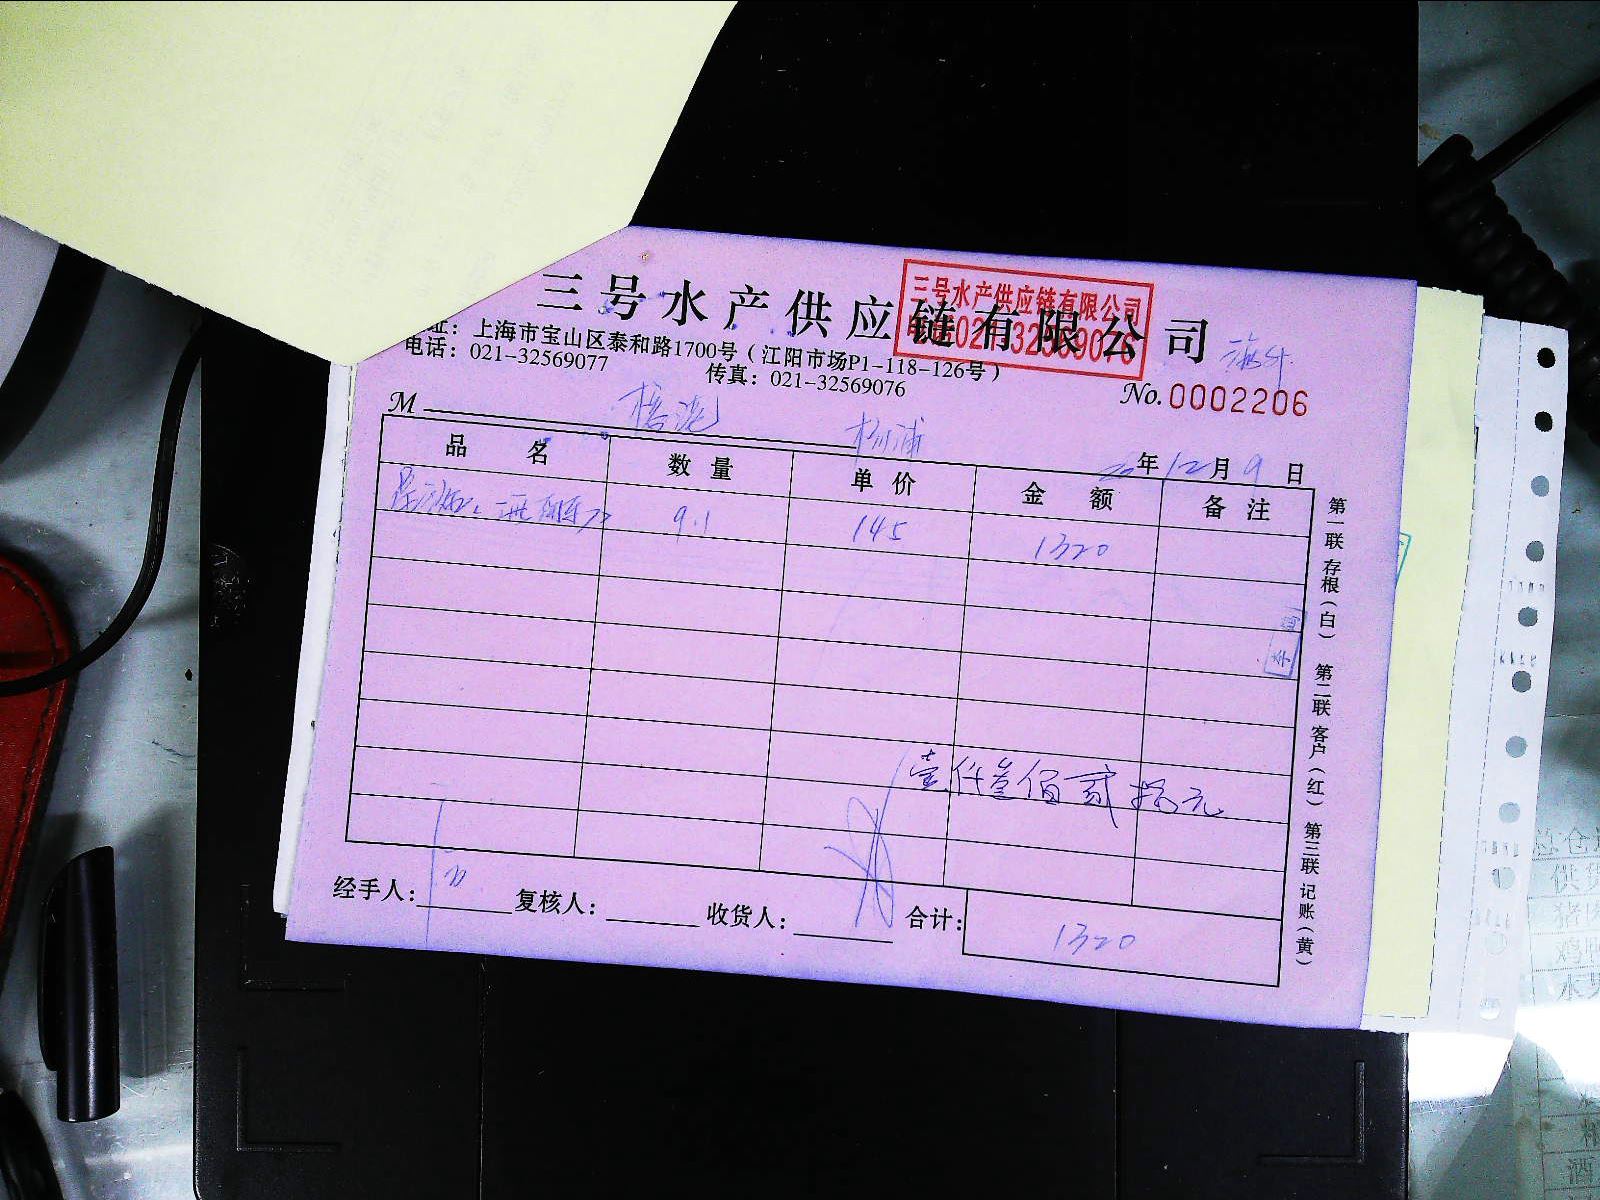 三号水产供应链有限公司
三号水产供应链有限公司
021-32569076
址：上海市宝山区泰和路1700号（江阳市场P1-118-126号）
电话：021-32569077
传真：021-32569076
No.0002206
M
杨浦
年12月9日
品名 数量 单价 金额 备注
9.1 145 1320
壹仟叁佰贰拾元
经手人： 复核人： 收货人： 合计： 1320
第一联 存根（白） 第二联 客户（红） 第三联 记账（黄）